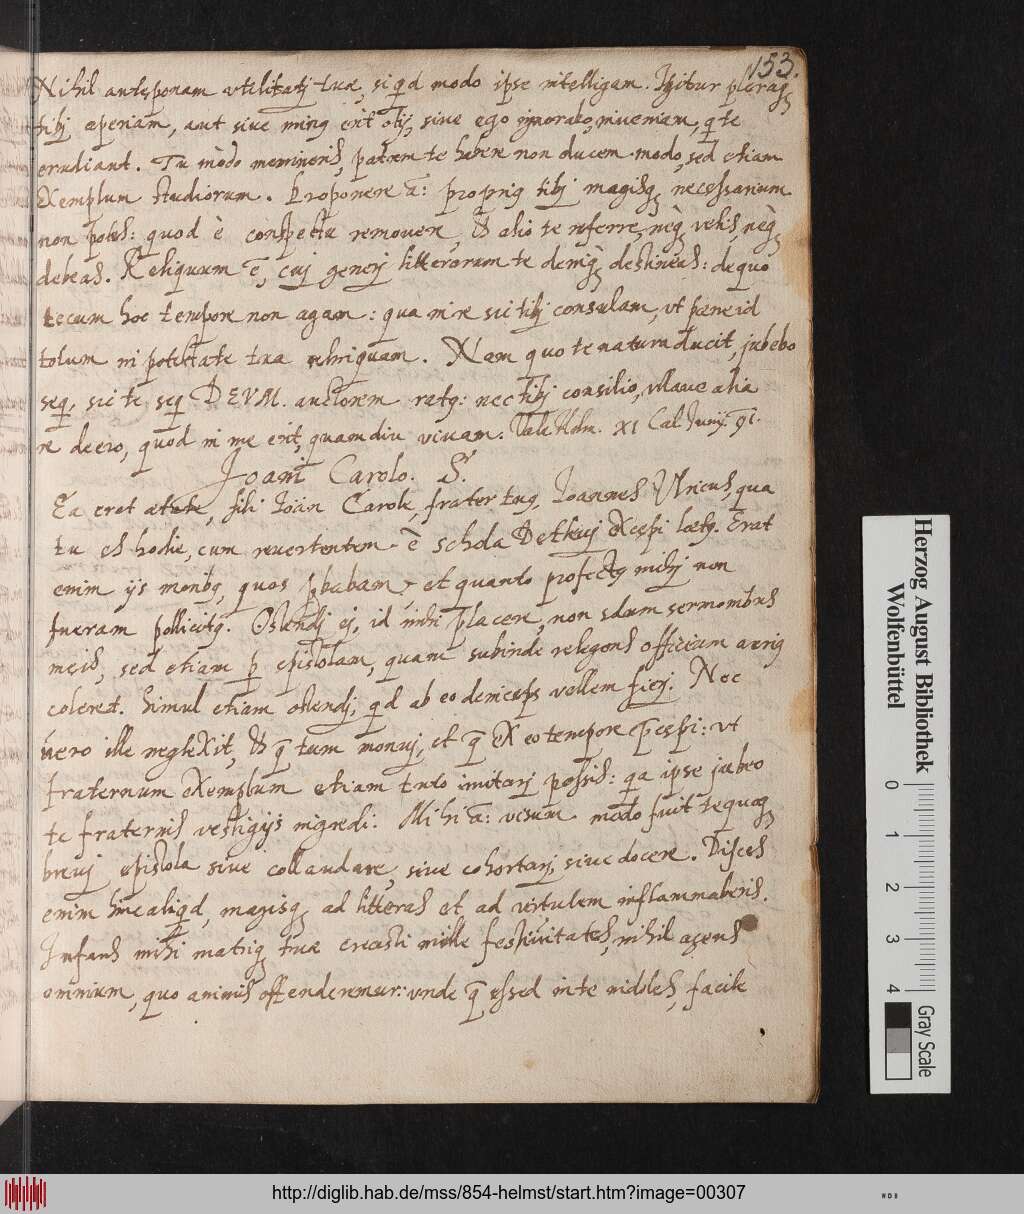 153.
Nihil anteponam vtilitatj tuæ, si qd modo ipse intelligam. Igitur pleraq
tibj aperiam, aut siue ming erit otij, siue ego ignorabo, inueniam, q te
erudiant. Tu modo memineris, patrem te habere non ducem modo, sed etiam
Exemplum studiorum. Proponere a: proprig tibj magisq necessarium
non potes: quod è conspectu remouere, & alio te referre, neq velis, neq
debeas. Reliquum ē, cuj generj litterarum te deniq destineris: de quo
tecum hoc tempore non agam: qua in re sic tibj consulam, vt pæne id
totum in potestate tua relinquam. Nam quo te natura ducit, jubebo
seq, sic te seq DEVM. auctorem ratg: nec tibj consilio, vllaue alia
re deero, quod in me erit, quamdiu viuam. Vale Hdm. XI Cal Junij. 91.
Joanī Carolo. S.
Ea erat ætate, fili Joān Carole, frater tug, Joannes Vlricus, qua
tu es hodie, cum reuertentem è schola Detleuj excepi lætg. Erat
enim ijs moribg, quos pbabam, et quanto profectg mihj non
fueram pollicitg. Ostendj ej, id mihi placere, non solum sermonibus
meis, sed etiam p epistolam, quam subinde relegens officium acrig
coleret. Simul etiam ostendj, qd ab eo deinceps vellem fierj. Nec
vero ille neglexit, & q tum monuj, et q Ex eo tempore pcepi: vt
fraternum exemplum etiam tuto imitarj possis: qa ipse jubeo
te fraternis vestigijs ingredi. Mihi a: visum modo fuit te quoq
breuj epistola siue collaudare, siue cohortarj, siue docere. Disces
enim hinc aliqd, magisq ad litteras et ad virtutem inflammaberis.
Infans mihi matrig tuæ creasti mille festiuitates, nihil agens
omnium, quo animis offenderemur: vnde q esset in te indoles, facile
Herzog August Bibliothek
Wolfenbüttel
0 1 2 3 4
Gray Scale
http://diglib.hab.de/mss/854-helmst/start.htm?image=00307